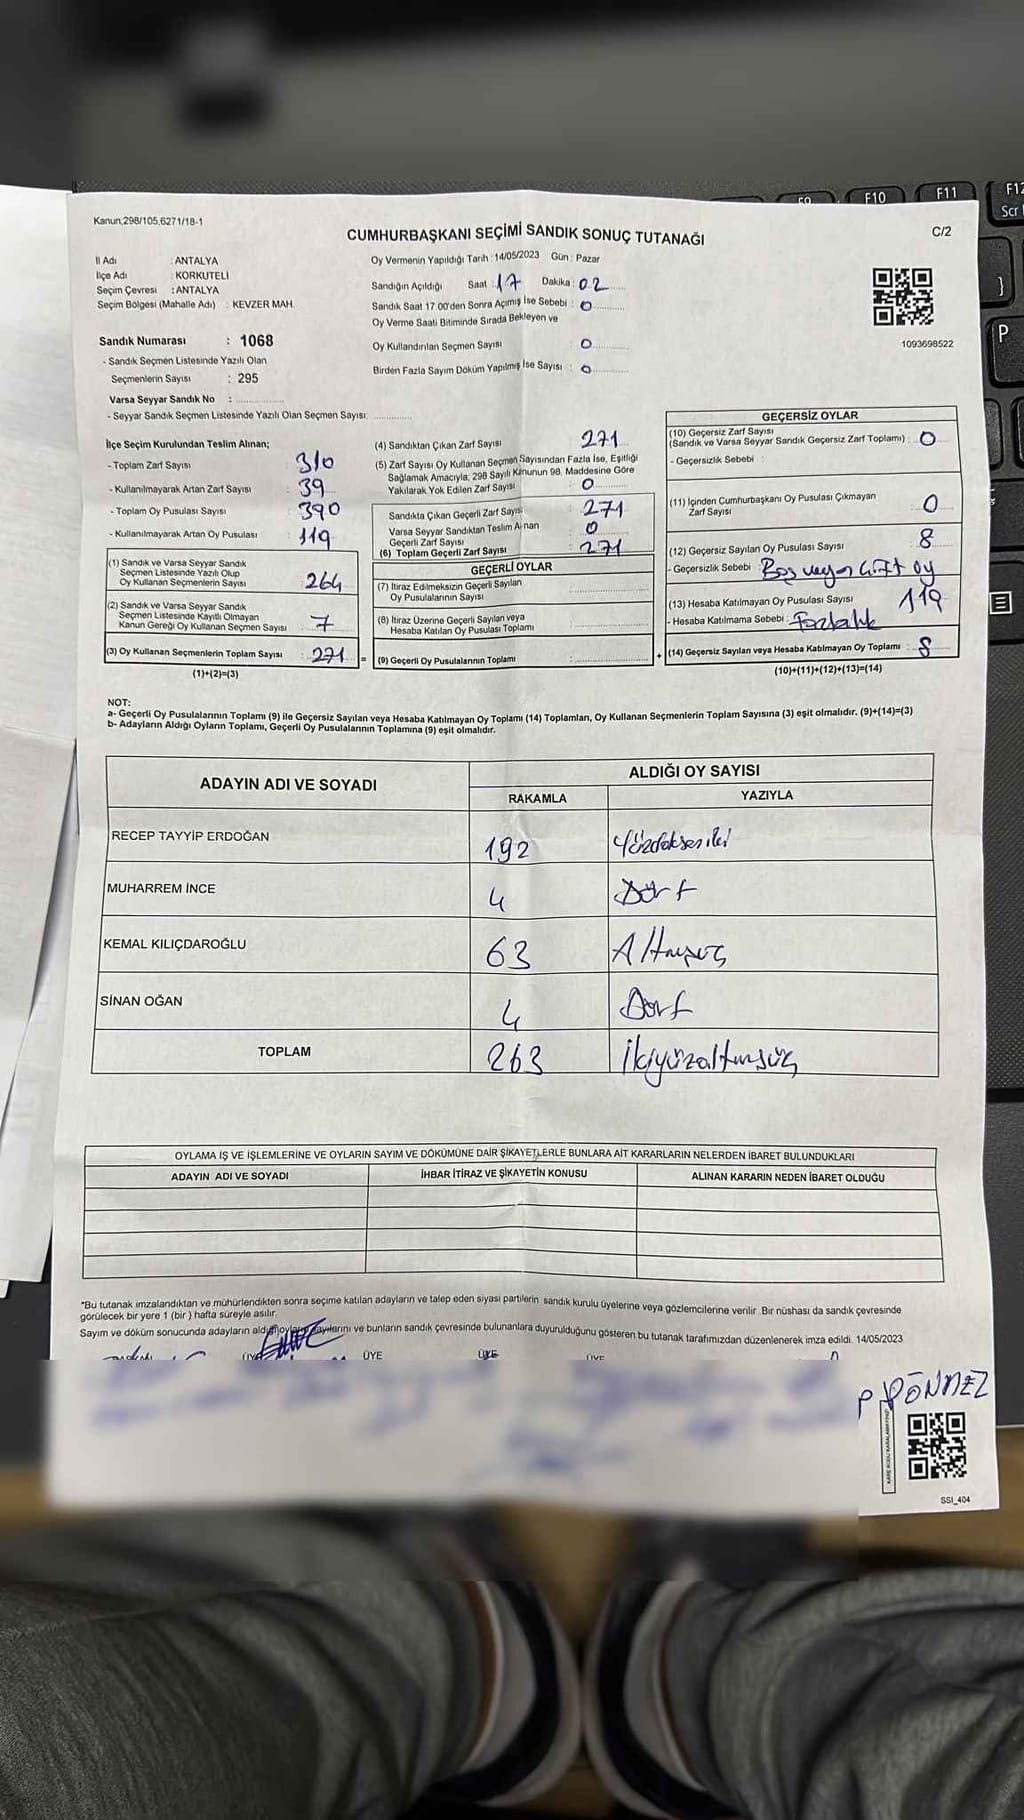 Kanun,298/105,6271/18-1
CUMHURBAŞKANI SEÇİMİ SANDIK SONUÇ TUTANAĞI
C/2
İl Adı : ANTALYA
İlçe Adı : KORKUTELİ
Seçim Çevresi : ANTALYA
Seçim Bölgesi (Mahalle Adı) : KEVZER MAH.
Sandık Numarası : 1068
- Sandık Seçmen Listesinde Yazılı Olan
Seçmenlerin Sayısı : 295
Varsa Seyyar Sandık No :
- Seyyar Sandık Seçmen Listesinde Yazılı Olan Seçmen Sayısı:
Oy Vermenin Yapıldığı Tarih : 14/05/2023 Gün : Pazar
Sandığın Açıldığı Saat : 17 Dakika : 02
Sandık Saat 17.00'den Sonra Açımış İse Sebebi : 0
Oy Verme Saati Bitiminde Sırada Bekleyen ve
Oy Kullandırılan Seçmen Sayısı : 0
Birden Fazla Sayım Döküm Yapılmış İse Sayısı : 0
1093698522
İlçe Seçim Kurulundan Teslim Alınan;
- Toplam Zarf Sayısı : 310
- Kullanılmayarak Artan Zarf Sayısı : 39
- Toplam Oy Pusulası Sayısı : 390
- Kullanılmayarak Artan Oy Pusulası : 119
(1) Sandık ve Varsa Seyyar Sandık
Seçmen Listesinde Yazılı Olup
Oy Kullanan Seçmenlerin Sayısı : 264
(2) Sandık ve Varsa Seyyar Sandık
Seçmen Listesinde Kayıtlı Olmayan
Kanun Gereği Oy Kullanan Seçmen Sayısı : 7
(3) Oy Kullanan Seçmenlerin Toplam Sayısı : 271
(1)+(2)=(3)
(4) Sandıktan Çıkan Zarf Sayısı : 271
(5) Zarf Sayısı Oy Kullanan Seçmen Sayısından Fazla İse, Eşitliği
Sağlamak Amacıyla, 298 Sayılı Kanunun 98. Maddesine Göre
Yakılarak Yok Edilen Zarf Sayısı : 0
Sandıkta Çıkan Geçerli Zarf Sayısı : 271
Varsa Seyyar Sandıktan Teslim Alınan
Geçerli Zarf Sayısı : 0
(6) Toplam Geçerli Zarf Sayısı : 271
GEÇERLİ OYLAR
(7) İtiraz Edilmeksizin Geçerli Sayılan
Oy Pusulalarının Sayısı :
(8) İtiraz Üzerine Geçerli Sayılan veya
Hesaba Katılan Oy Pusulası Toplamı :
= (9) Geçerli Oy Pusulalarının Toplamı :
GEÇERSİZ OYLAR
(10) Geçersiz Zarf Sayısı
(Sandık ve Varsa Seyyar Sandık Geçersiz Zarf Toplamı) : 0
- Geçersizlik Sebebi :
(11) İçinden Cumhurbaşkanı Oy Pusulası Çıkmayan
Zarf Sayısı : 0
(12) Geçersiz Sayılan Oy Pusulası Sayısı : 8
- Geçersizlik Sebebi : Boş veya Çift oy
(13) Hesaba Katılmayan Oy Pusulası Sayısı : 119
- Hesaba Katılmama Sebebi : Fazlalık
+ (14) Geçersiz Sayılan veya Hesaba Katılmayan Oy Toplamı : 8
(10)+(11)+(12)+(13)=(14)
NOT:
a- Geçerli Oy Pusulalarının Toplamı (9) ile Geçersiz Sayılan veya Hesaba Katılmayan Oy Toplamı (14) Toplamları, Oy Kullanan Seçmenlerin Toplam Sayısına (3) eşit olmalıdır. (9)+(14)=(3)
b- Adayların Aldığı Oyların Toplamı, Geçerli Oy Pusulalarının Toplamına (9) eşit olmalıdır.
ADAYIN ADI VE SOYADI
ALDIĞI OY SAYISI
RAKAMLA YAZIYLA
RECEP TAYYİP ERDOĞAN 192 Yüzdoksaniki
MUHARREM İNCE 4 Dört
KEMAL KILIÇDAROĞLU 63 Altmışüç
SİNAN OĞAN 4 Dört
TOPLAM 263 İkiyüzaltmışüç
OYLAMA İŞ VE İŞLEMLERİNE VE OYLARIN SAYIM VE DÖKÜMÜNE DAİR ŞİKAYETLERLE BUNLARA AİT KARARLARIN NELERDEN İBARET BULUNDUKLARI
ADAYIN ADI VE SOYADI İHBAR İTİRAZ VE ŞİKAYETİN KONUSU ALINAN KARARIN NEDEN İBARET OLDUĞU
*Bu tutanak imzalandıktan ve mühürlendikten sonra seçime katılan adayların ve talep eden siyasi partilerin sandık kurulu üyelerine veya gözlemcilerine verilir .Bir nüshası da sandık çevresinde
görülecek bir yere 1 (bir ) hafta süreyle asılır.
Sayım ve döküm sonucunda adayların aldığı oyların sayılarını ve bunların sandık çevresinde bulunanlara duyurulduğunu gösteren bu tutanak tarafımızdan düzenlenerek imza edildi. 14/05/2023
ÜYE ÜYE ÜYE ÜYE
P DÖNMEZ
SSI_404
F9 F10 F11 F12
Scr
}
P